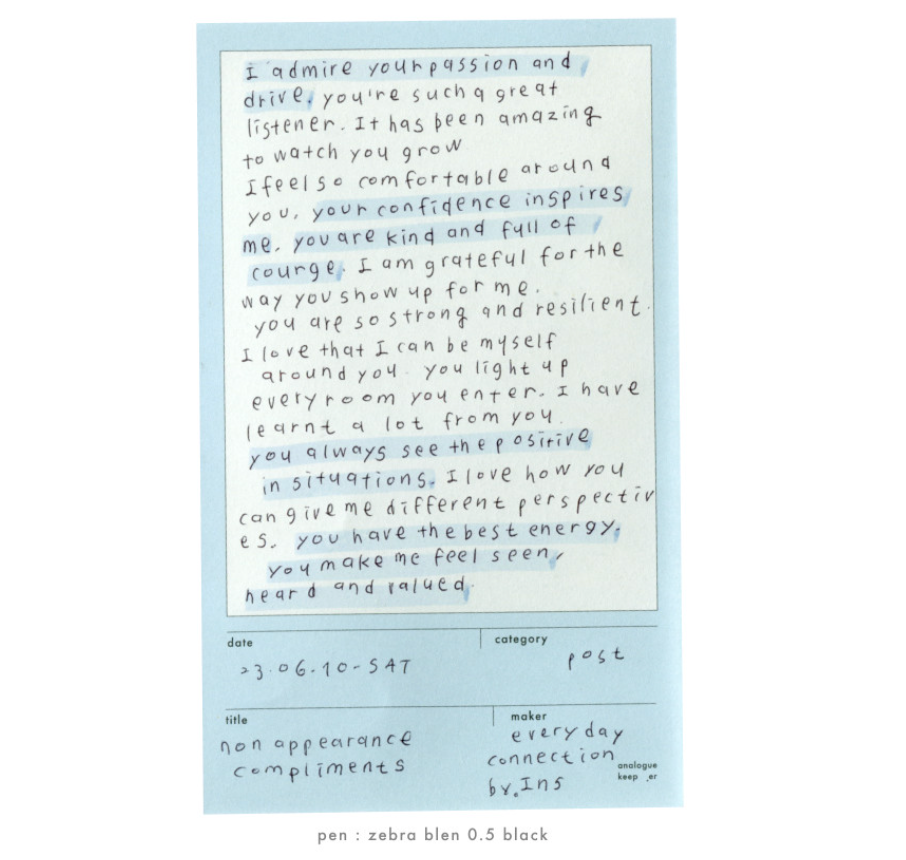 I admire your passion and
drive. you're such a great
listener. It has been amazing
to watch you grow
I feel so comfortable around
you. your confidence inspires
me. you are kind and full of
courge. I am grateful for the
way you show up for me.
you are so strong and resilient.
I love that I can be myself
around you. you light up
every room you enter. I have
learnt a lot from you.
you always see the positive
in situations. I love how you
can give me different perspectiv
es. you have the best energy.
you make me feel seen,
heard and valued.
date
23.06.10-SAT
category
post
title
non appearance
compliments
maker
everyday
connection
by.Ins
analogue
keep_er
pen : zebra blen 0.5 black